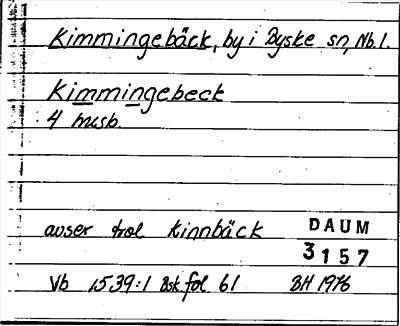 Kimmingebäck, by i Byske sn, Nb. l.
Kimmingebeck
4 husb.
avser trol Kinnbäck
DAUM
3157
Vb 1539:1 Bsk fol 61 BH 1976